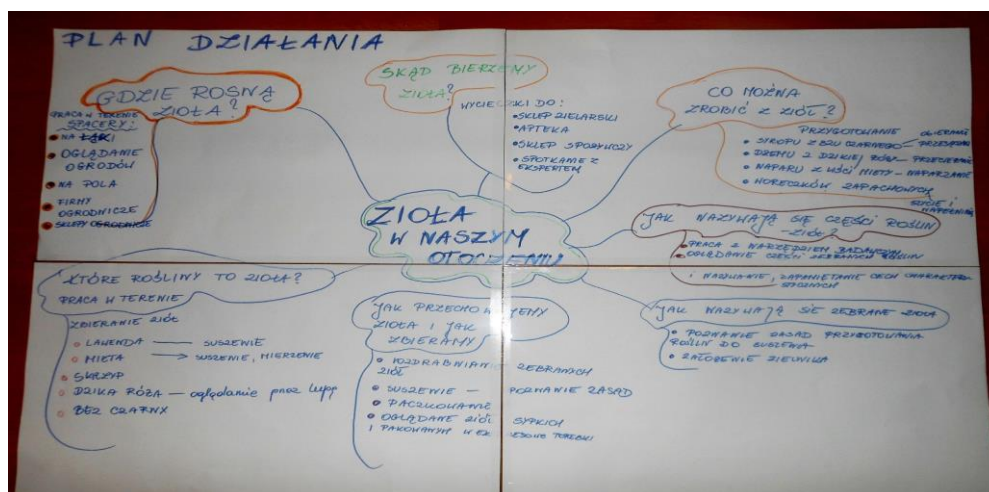 PLAN DZIAŁANIA
GDZIE ROSNĄ
ZIOŁA?
PRACA W TERENIE
SPACERY:
NA ŁĄKI
OGLĄDANIE
OGRODÓW
NA POLA
FIRMY
OGRODNICZE
SKLEPY OGRODNICZE
SKĄD BIERZEMY
ZIOŁA?
WYCIECZKI DO:
SKLEP ZIELARSKI
APTEKA
SKLEP SPOŻYWCZY
SPOTKANIE Z
EKSPERTEM
CO MOŻNA
ZROBIĆ Z ZIÓŁ?
PRZYGOTOWANIE
SYROPU Z BZU CZARNEGO
DŻEMU Z DZIKIEJ RÓŻY – PRZECIERANIE
NAPARU Z LIŚCI MIĘTY – NAPARZANIE
WORECZKÓW ZAPACHOWYCH
SZYCIE I
NAPEŁNIANIE
ZIOŁA
W NASZYM
OTOCZENIU
JAK NAZYWAJĄ SIĘ CZĘŚCI ROŚLIN
– ZIÓŁ?
PRACA Z NARZĘDZIEM BADAWCZYM
OGLĄDANIE CZĘŚCI ZEBRANYCH ROŚLIN
i NAZYWANIE, ZAPAMIĘTANIE CECH CHARAKTERY-
STYCZNYCH
KTÓRE ROŚLINY TO ZIOŁA?
PRACA W TERENIE
ZBIERANIE ZIÓŁ
LAWENDA — SUSZENIE
MIĘTA → SUSZENIE, MIERZENIE
SKRZYP
DZIKA RÓŻA — oglądanie przez lupę
BEZ CZARNY
JAK PRZECHOWUJEMY
ZIOŁA I JAK
ZBIERAMY
ROZDRABNIANIE ZEBRANYCH
ZIÓŁ
SUSZENIE — POZNANIE ZASAD
PACZKOWANIE
OGLĄDANIE ZIÓŁ SYPKICH
I PAKOWANYCH W TOREBKI
JAK NAZYWAJĄ SIĘ ZEBRANE ZIOŁA
POZNANIE ZASAD PRZYGOTOWANIA
ROŚLIN DO SUSZENIA
ZAŁOŻENIE ZIELNIKA